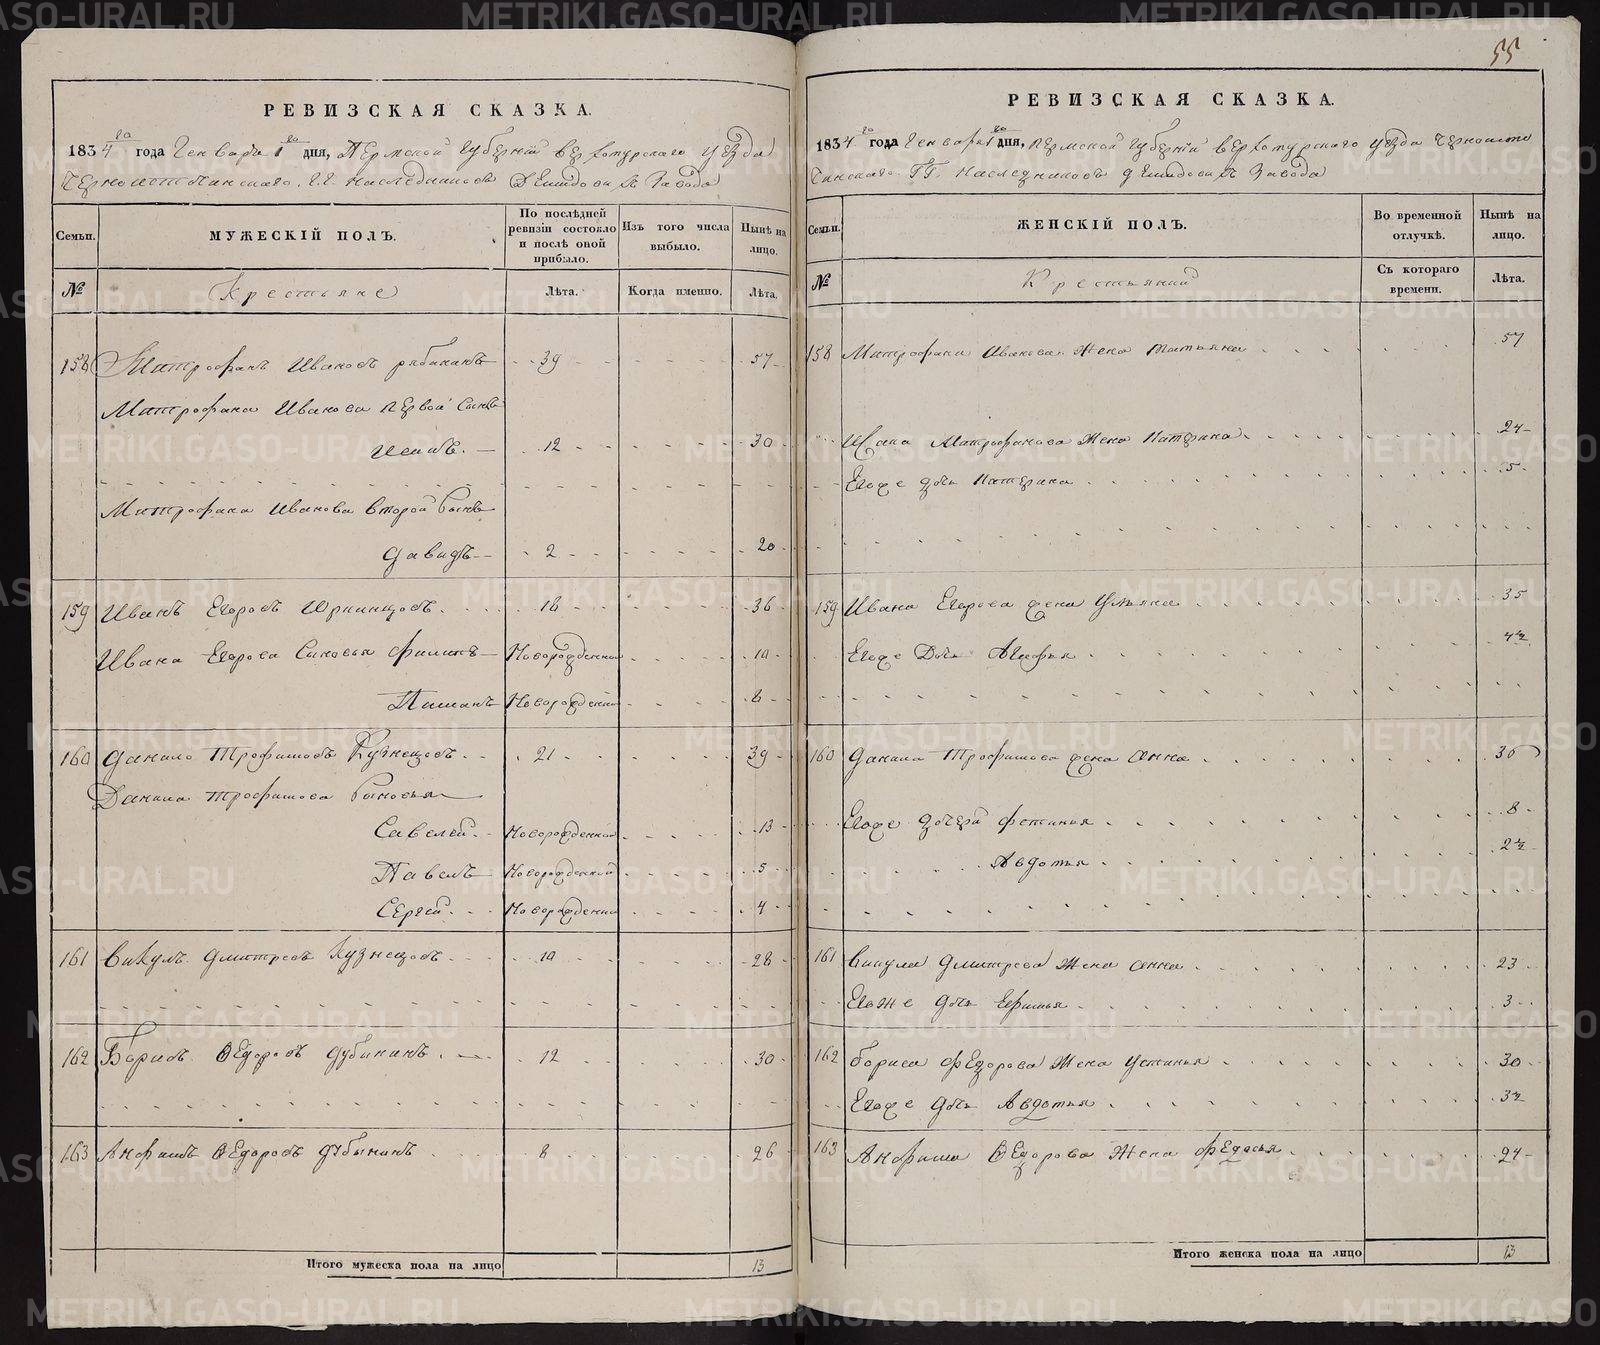 55
РЕВИЗСКАЯ СКАЗКА.
1834го года Генваря 1го дня, Пермской Губернiи верхотурского уезда
Черноисточинского Г.Г. наследниковъ Демидовыхъ Завода
Семьи.
МУЖЕСКІЙ ПОЛЪ.
По послѣдней ревизіи состояло и послѣ оной прибыло.
Изъ того числа выбыло.
Нынѣ на лицо.
№
Крестьяне
Лѣта.
Когда именно.
Лѣта.
158 Митрофанъ Ивановъ рябининъ 39 57
Митрофана Иванова первой сынъ
Исакъ. 12 30
Митрофана Иванова второй сынъ
Давидъ 2 20
159 Иванъ Егоровъ 18 36
Ивана Егорова сыновья Филипъ Новорожденной 10
Пиманъ Новорожденной 8
160 Данило Трофимовъ Кузнецовъ 21 39
Данила Трофимова сыновья
Савелей Новорожденной 13
Павелъ Новорожденной 5
Сергей Новорожденной 4
161 Викулъ Дмитревъ Кузнецовъ 10 28
162 Борисъ Ѳедоровъ Дубининъ 12 30
163 Анфимъ Ѳедоровъ дубынинъ 8 26
Итого мужеска пола на лицо 13
РЕВИЗСКАЯ СКАЗКА.
1834го года Генваря 1го дня, пермской губернiи верхотурского уезда Черноисто
чинского ГГ. наследниковъ Демидовыхъ Завода
Семьи.
ЖЕНСКІЙ ПОЛЪ.
Во временной отлучкѣ.
Нынѣ на лицо.
№
Крестьянки
Съ котораго времени.
Лѣта.
158 Митрофана Иванова Жена Татьяна 57
Исака Митрофанова Жена Катерина 24
Егоже дочь Катерина 5
159 Ивана Егорова жена Ульяна 35
Егоже Дочь Агафья 4½
160 Данила Трофимова жена Анна 36
Егоже дочери Фетинья 8
Авдотья 2½
161 Викула Дмитрева Жена Анна 23
Егоже дочь Ефимья 3
162 бориса Федорова Жена Устинья 30
Егоже дочь Авдотья 3½
163 Анфима Ѳедорова Жена Федосья 24
Итого женска пола на лицо 13
METRIKI.GASO-URAL.RU